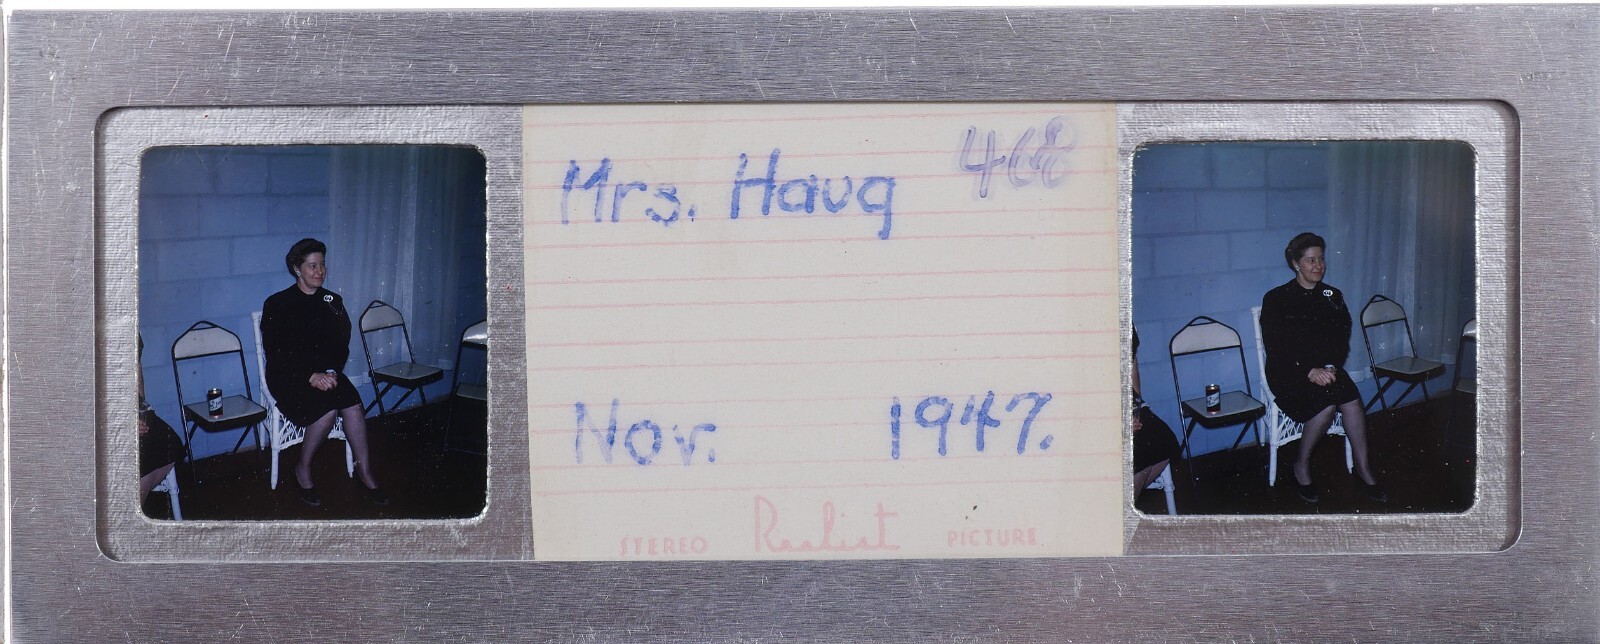 468
Mrs. Haug
Nov. 1947.
STEREO Realist PICTURE